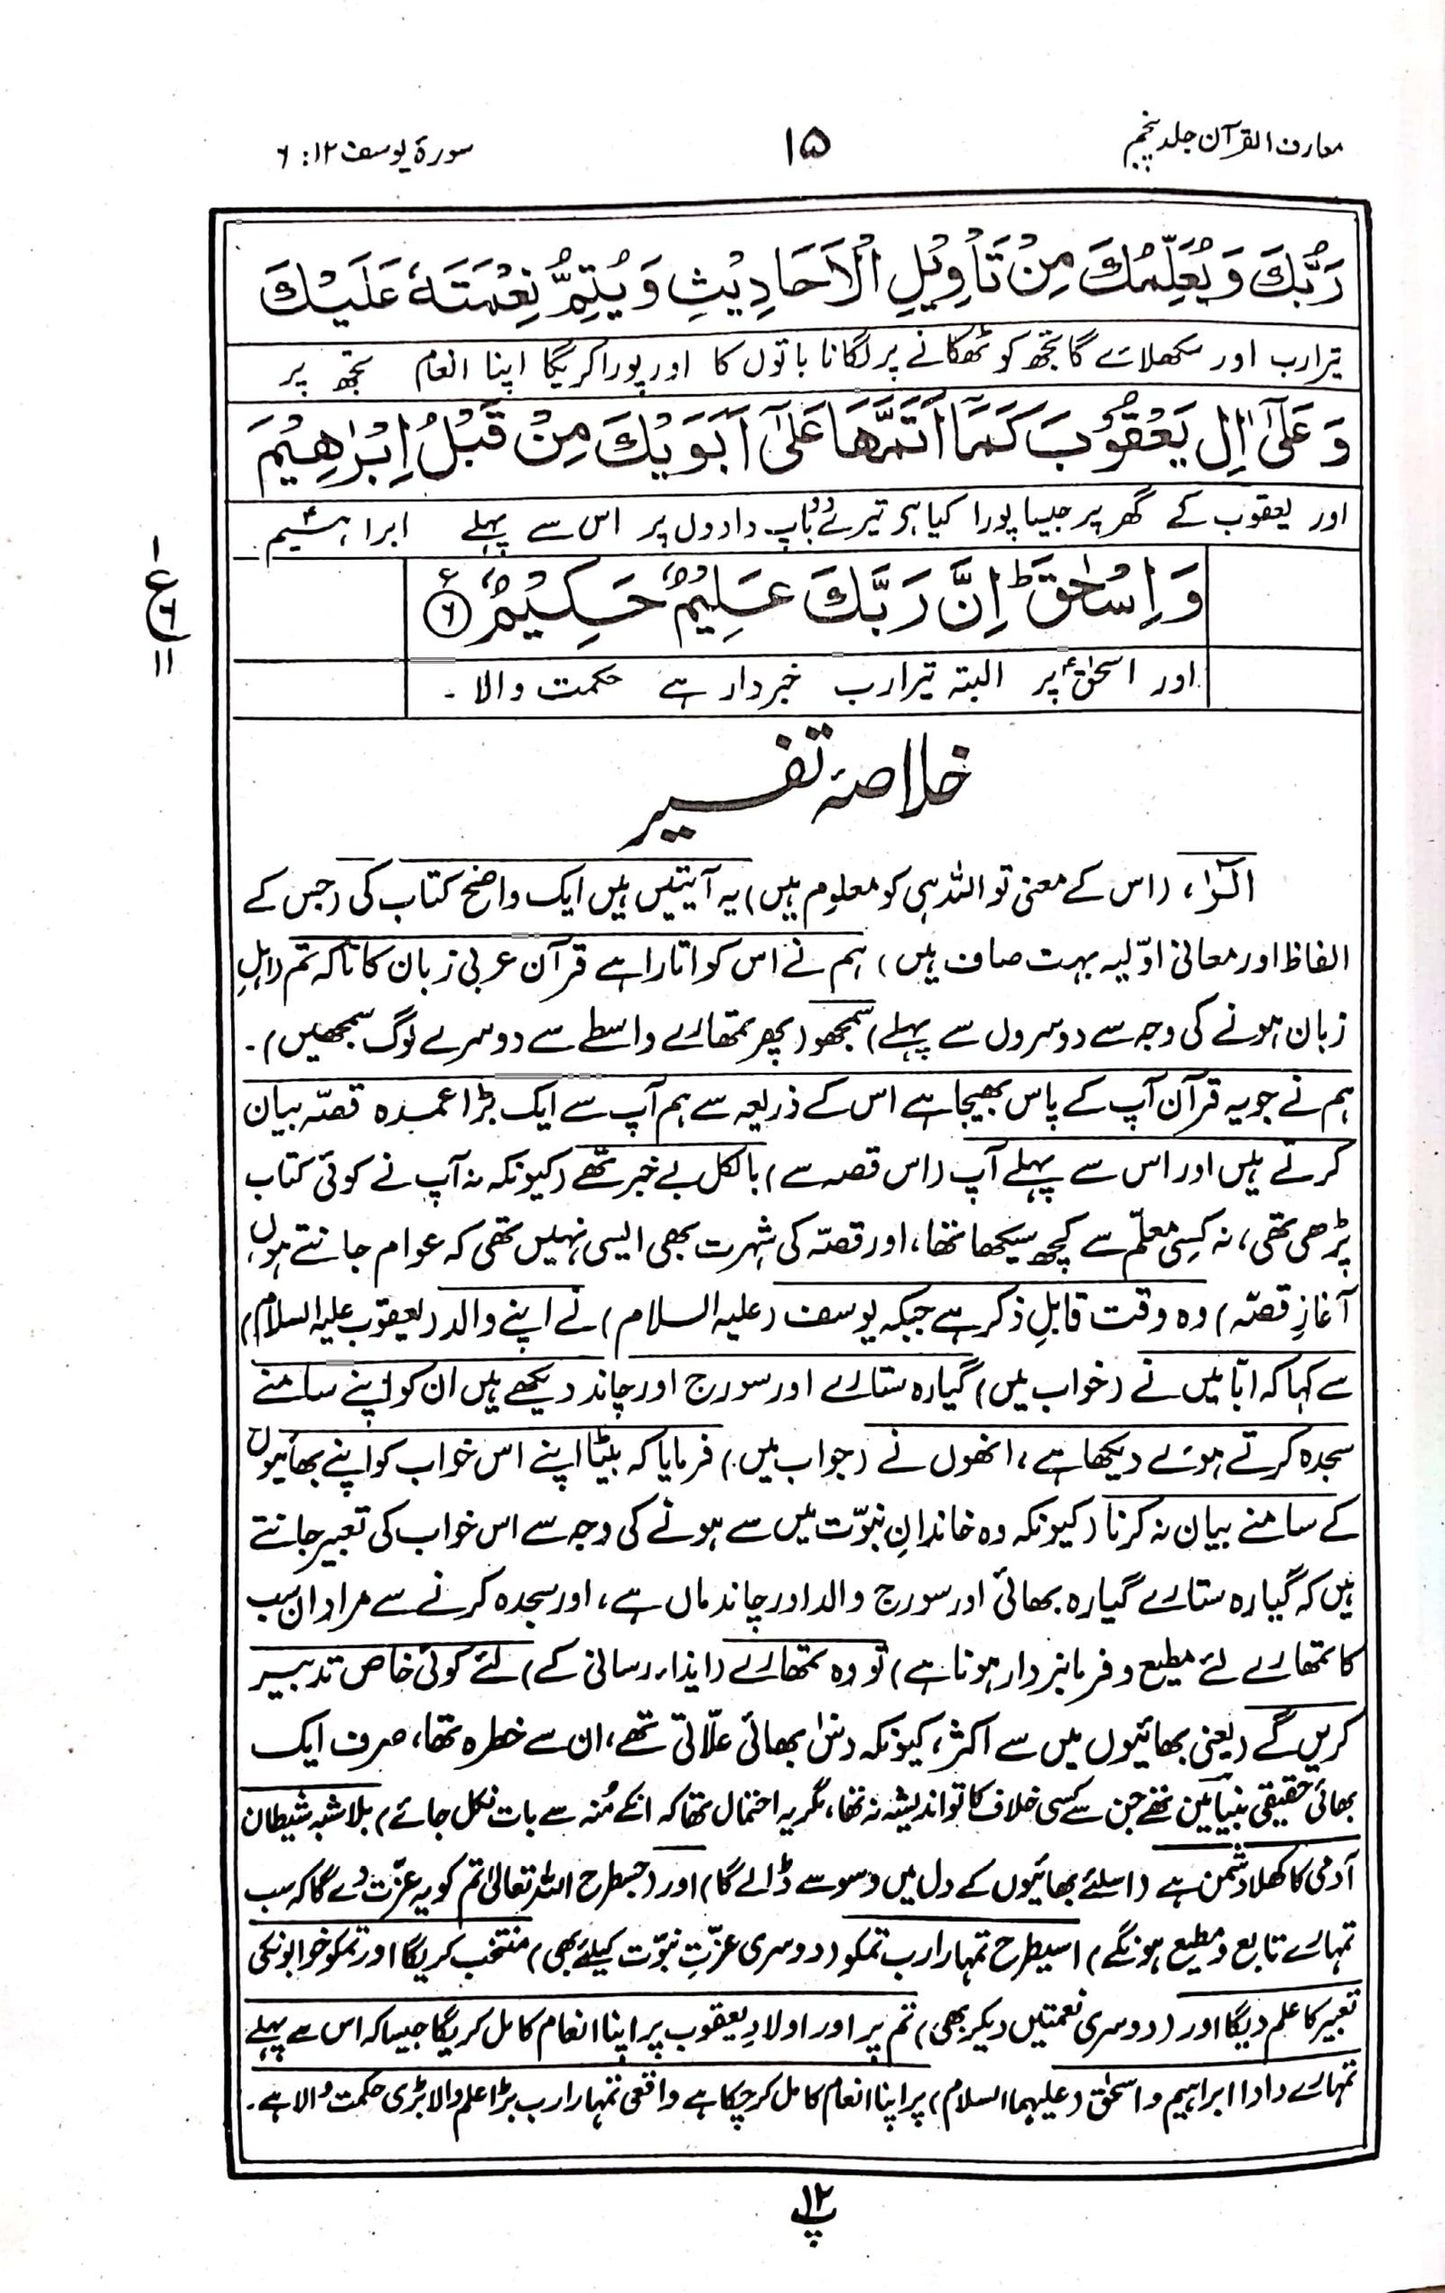 معارف القرآن جلد پنجم
۱۵
سورۃ یوسف ۱۲ : ۶
رَبُّكَ وَيُعَلِّمُكَ مِنْ تَأْوِيْلِ الْاَحَادِيْثِ وَيُتِمُّ نِعْمَتَهٗ عَلَيْكَ
تیرا رب اور سکھلائے گا تجھ کو ٹھکانے پر لگانا باتوں کا اور پورا کریگا اپنا انعام تجھ پر
وَعَلٰٓى اٰلِ يَعْقُوْبَ كَمَآ اَتَمَّهَا عَلٰٓى اَبَوَيْكَ مِنْ قَبْلُ اِبْرٰهِيْمَ
اور یعقوب کے گھر پر جیسا پورا کیا ہر تیرے دو باپ دادوں پر اس سے پہلے ابراہیم
وَاِسْحٰقَ ؕ اِنَّ رَبَّكَ عَلِيْمٌ حَكِيْمٌ ۶
ع ۱ ۶ ۱۱
اور اسحٰقؑ پر البتہ تیرا رب خبردار ہے حکمت والا ۔
خلاصۂ تفسیر
الٓرٰ، (اس کے معنی تو اللہ ہی کو معلوم ہیں) یہ آیتیں ہیں ایک واضح کتاب کی (جس کے
الفاظ اور معانی اوّلیہ بہت صاف ہیں) ہم نے اس کو اتارا ہے قرآن عربی زبان کا تاکہ تم (اہلِ
زبان ہونے کی وجہ سے دوسروں سے پہلے) سمجھو (پھر تمھارے واسطے سے دوسرے لوگ سمجھیں)۔
ہم نے جو یہ قرآن آپ کے پاس بھیجا ہے اس کے ذریعہ سے ہم آپ سے ایک بڑا عمدہ قصّہ بیان
کرتے ہیں اور اس سے پہلے آپ (اس قصہ سے) بالکل بے خبر تھے (کیونکہ نہ آپ نے کوئی کتاب
پڑھی تھی، نہ کسی معلّم سے کچھ سیکھا تھا، اور قصّہ کی شہرت بھی ایسی نہیں تھی کہ عوام جانتے ہوں،
آغازِ قصّہ) وہ وقت قابلِ ذکر ہے جبکہ یوسف (علیہ السلام) نے اپنے والد (یعقوب علیہ السلام)
سے کہا کہ ابّا میں نے (خواب میں) گیارہ ستارے اور سورج اور چاند دیکھے ہیں ان کو اپنے سامنے
سجدہ کرتے ہوئے دیکھا ہے، انھوں نے (جواب میں) فرمایا کہ بیٹا اپنے اس خواب کو اپنے بھائیوں
کے سامنے بیان نہ کرنا (کیونکہ وہ خاندانِ نبوّت میں سے ہونے کی وجہ سے اس خواب کی تعبیر جانتے
ہیں کہ گیارہ ستارے گیارہ بھائی اور سورج والد اور چاند ماں ہے، اور سجدہ کرنے سے مراد ان سب
کا تمھارے لئے مطیع و فرمانبردار ہونا ہے) تو وہ تمھارے (ایذاء رسانی کے) لئے کوئی خاص تدبیر
کریں گے (یعنی بھائیوں میں سے اکثر، کیونکہ دسؔ بھائی علّاتی تھے، ان سے خطرہ تھا، صرف ایک
بھائی حقیقی بنیامین تھے جن سے کسی خلاف کا تو اندیشہ نہ تھا، مگر یہ احتمال تھا کہ انکے مُنہ سے بات نکل جائے) بلاشبہ شیطان
آدمی کا کھلا دشمن ہے (اسلئے بھائیوں کے دل میں وسوسے ڈالے گا) اور (جسطرح اللہ تعالیٰ تم کو یہ عزّت دے گا کہ سب
تمہارے تابع و مطیع ہونگے) اسیطرح تمہارا رب تمکو (دوسری عزّتِ نبوّت کیلئے بھی) منتخب کریگا اور تمکو خوابونکی
تعبیر کا علم دیگا اور (دوسری نعمتیں دیکر بھی) تم پر اور اولادِ یعقوب پر اپنا انعام کامل کریگا جیسا کہ اس سے پہلے
تمہارے دادا ابراہیم و اسحٰق (علیہما السلام) پر اپنا انعام کامل کر چکا ہے واقعی تمہارا رب بڑا علم والا بڑی حکمت والا ہے۔
پ ۱۲